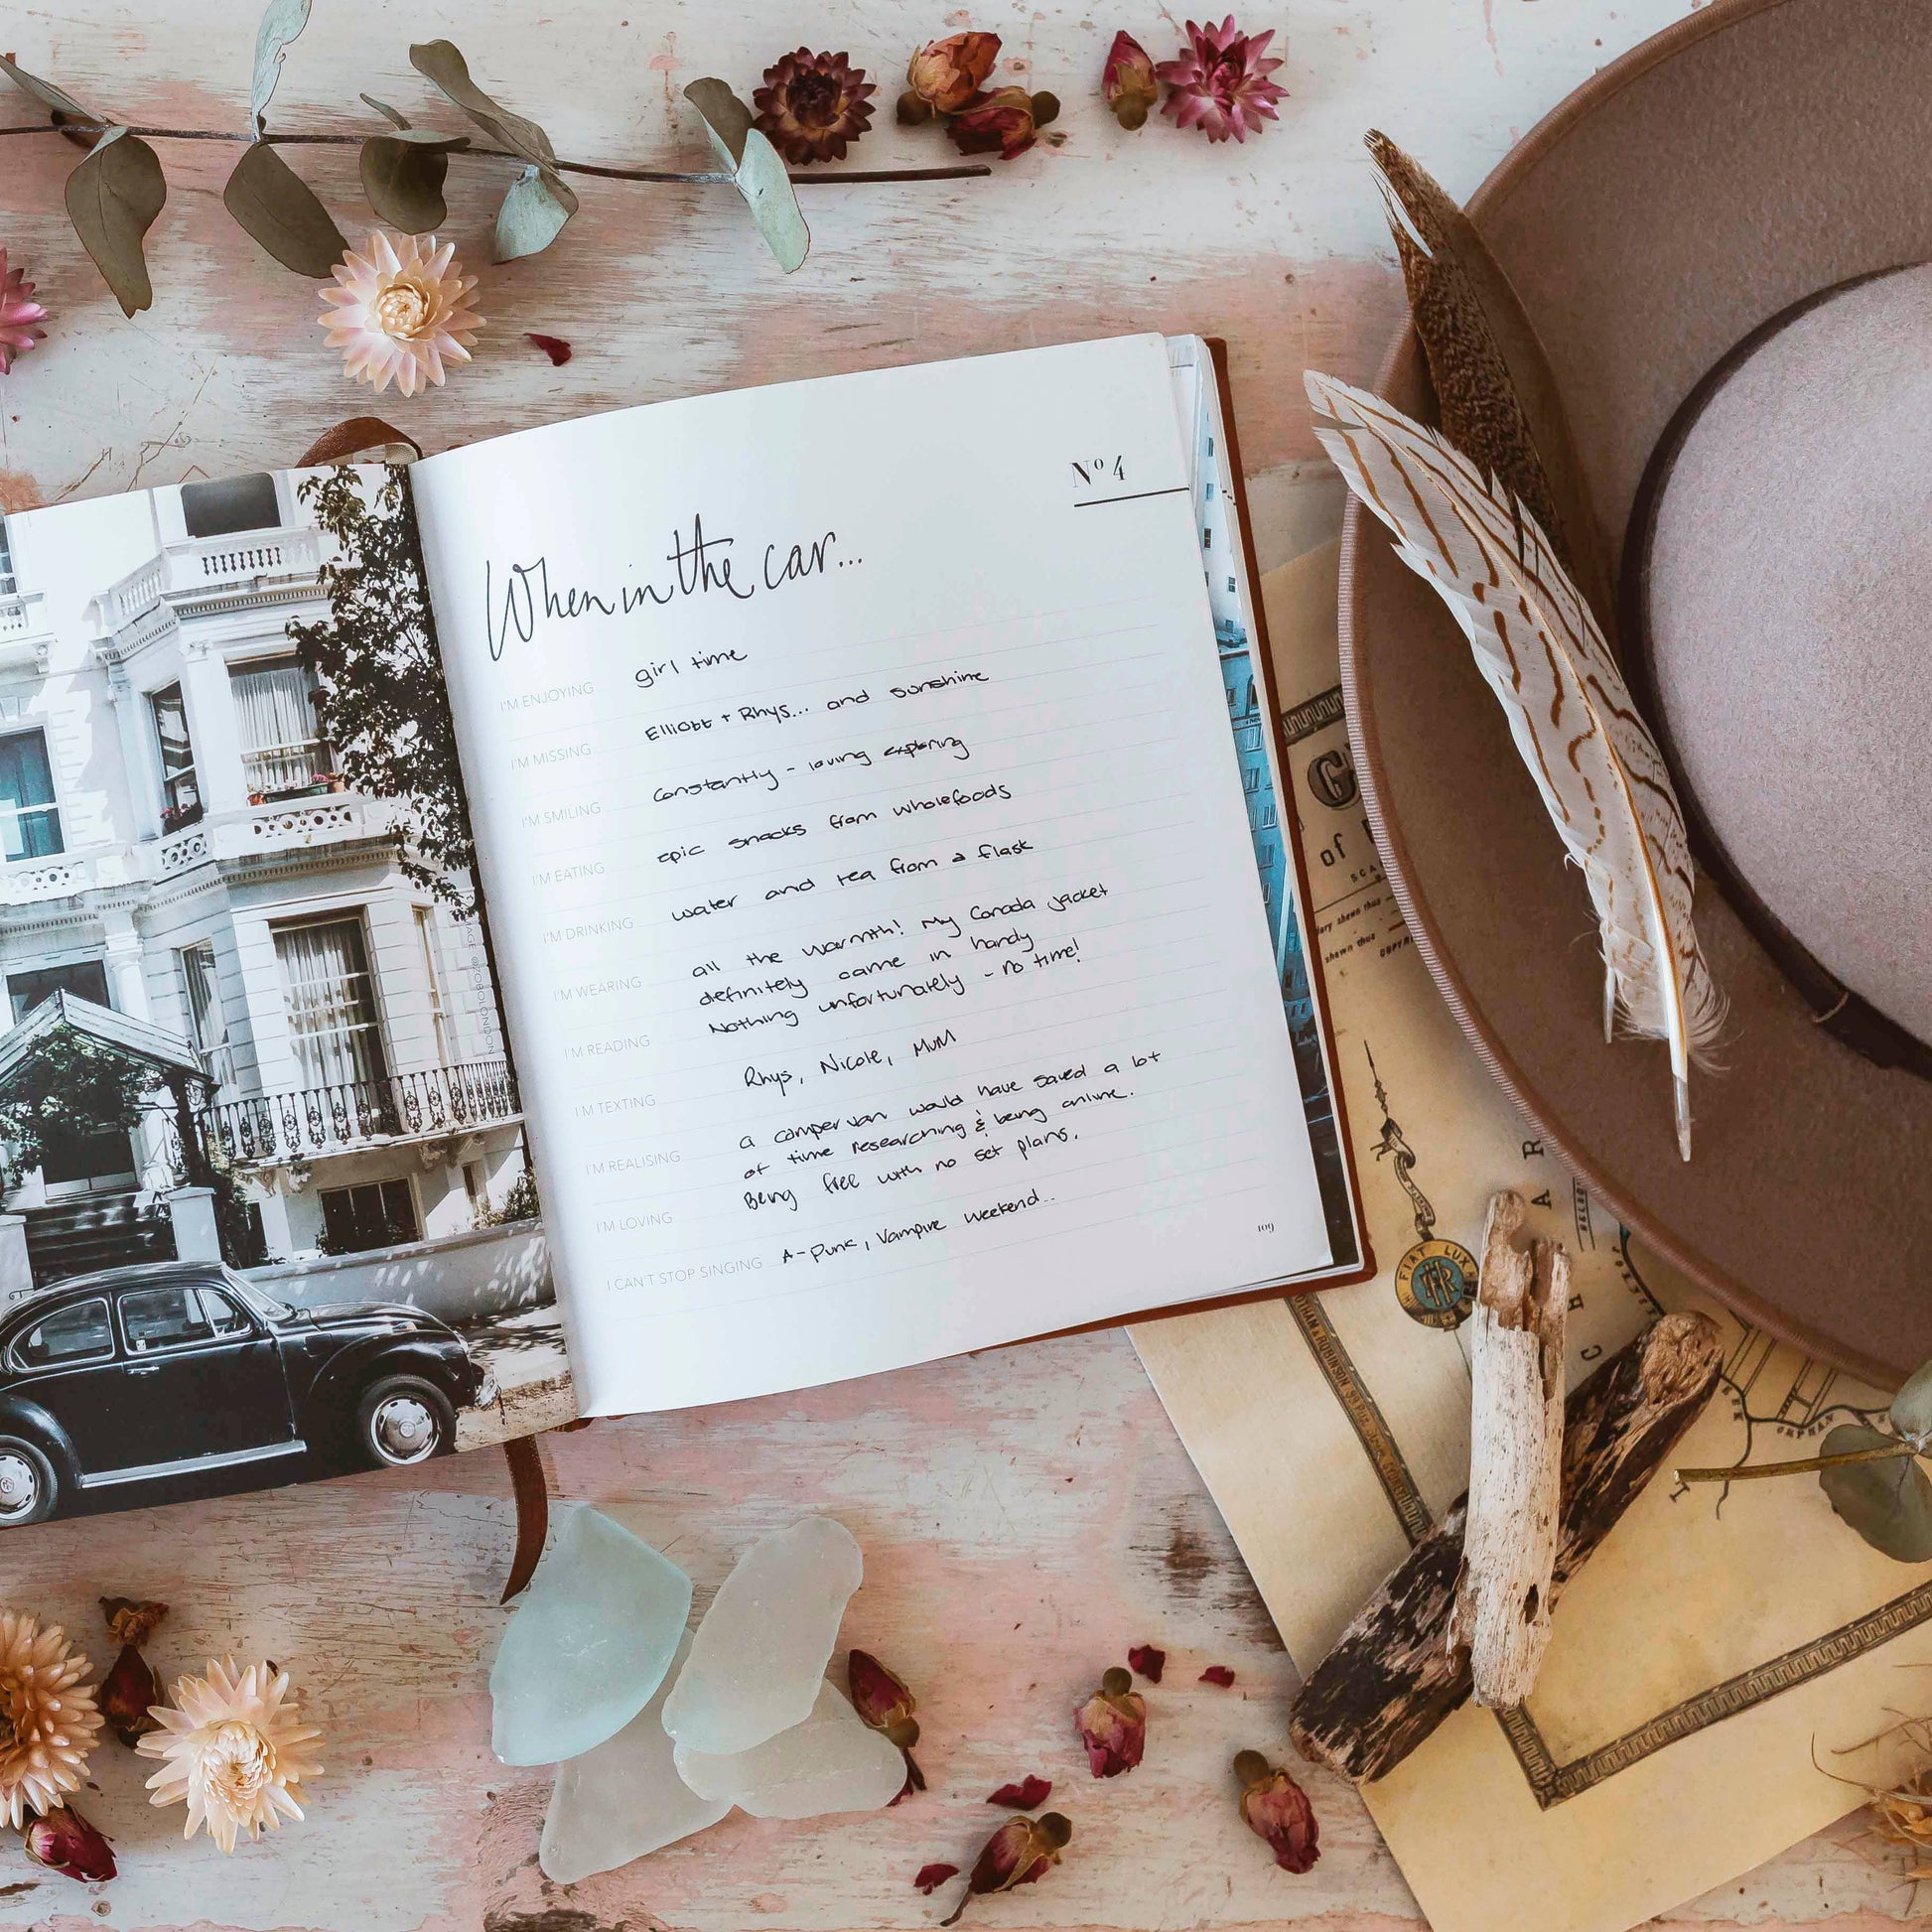 Nº 4
When in the car...
I'M ENJOYING girl time
I'M MISSING Elliott + Rhys... and sunshine
I'M SMILING constantly - loving exploring
I'M EATING epic snacks from wholefoods
I'M DRINKING water and tea from a flask
I'M WEARING all the warmth! My Canada jacket
definitely came in handy
I'M READING Nothing unfortunately - no time!
I'M TEXTING Rhys, Nicole, MuM
I'M REALISING a camper van would have saved a lot
of time researching & being online.
I'M LOVING Being free with no set plans.
I CAN'T STOP SINGING A-Punk, Vampire Weekend..
109
of
shown thus
FIAT LUX
HR
C H A R
ORPHAN